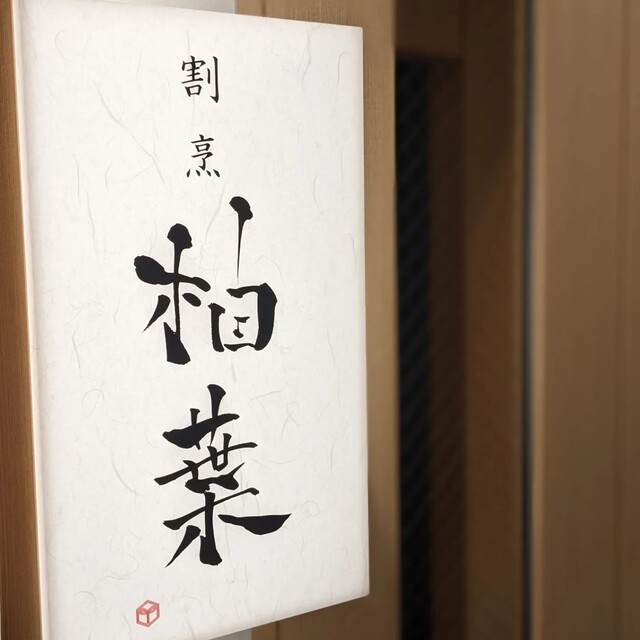 割烹
柏葉